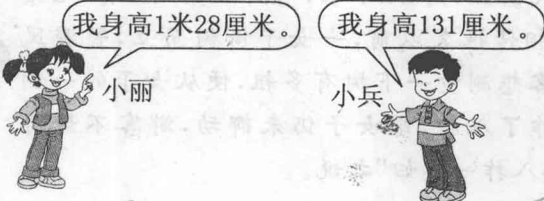 我身高1米28厘米。
我身高131厘米。
小丽
小兵